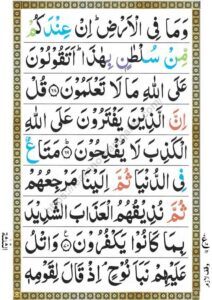 وَمَا فِى الْاَرْضِ ؕ اِنْ عِنْدَكُمْ
مِّنْ سُلْطٰنٍۭ بِهٰذَا ؕ اَتَقُوْلُوْنَ
عَلَى اللّٰهِ مَا لَا تَعْلَمُوْنَ ﴿۶۸﴾ قُلْ
اِنَّ الَّذِيْنَ يَفْتَرُوْنَ عَلَى اللّٰهِ
الْكَذِبَ لَا يُفْلِحُوْنَ ﴿۶۹﴾ مَتَاعٌ
فِى الدُّنْيَا ثُمَّ اِلَيْنَا مَرْجِعُهُمْ
ثُمَّ نُذِيْقُهُمُ الْعَذَابَ الشَّدِيْدَ
بِمَا كَانُوْا يَكْفُرُوْنَ ﴿۷۰﴾ وَاتْلُ
عَلَيْهِمْ نَبَاَ نُوْحٍ ۘ اِذْ قَالَ لِقَوْمِهٖ